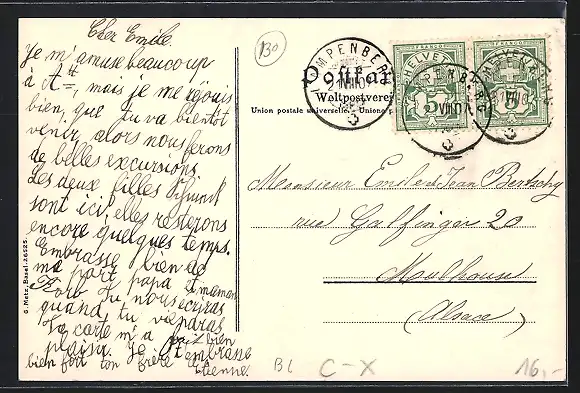 Cher Emile.
Je m'amuse beaucoup
à, mais je me réjouis
bien, que tu va bientôt
venir, alors nous ferons
de belles excursions.
Les deux filles
sont ici, elles resterons
encore quelques temps.
Embrasse bien de
ma part papa et maman
Tu nous écriras
quand tu viendras
Ta carte m'a fait bien
plaisir. Je t'embrasse
bien fort ton frère
Etienne.
G. Metz, Basel. 26525.
BO
Postkar
Weltpostverei
Union postale universelle. - Unione p
AMPENBERG
1 VIII 07
HELVETIA
FRANCO
5
VIII 07
FRANCO
5
AMPENBERG
Monsieur Emile et Jean Bertschy
rue Galfinger 20
Mulhouse
(Alsace)
BL
C-X
16,-